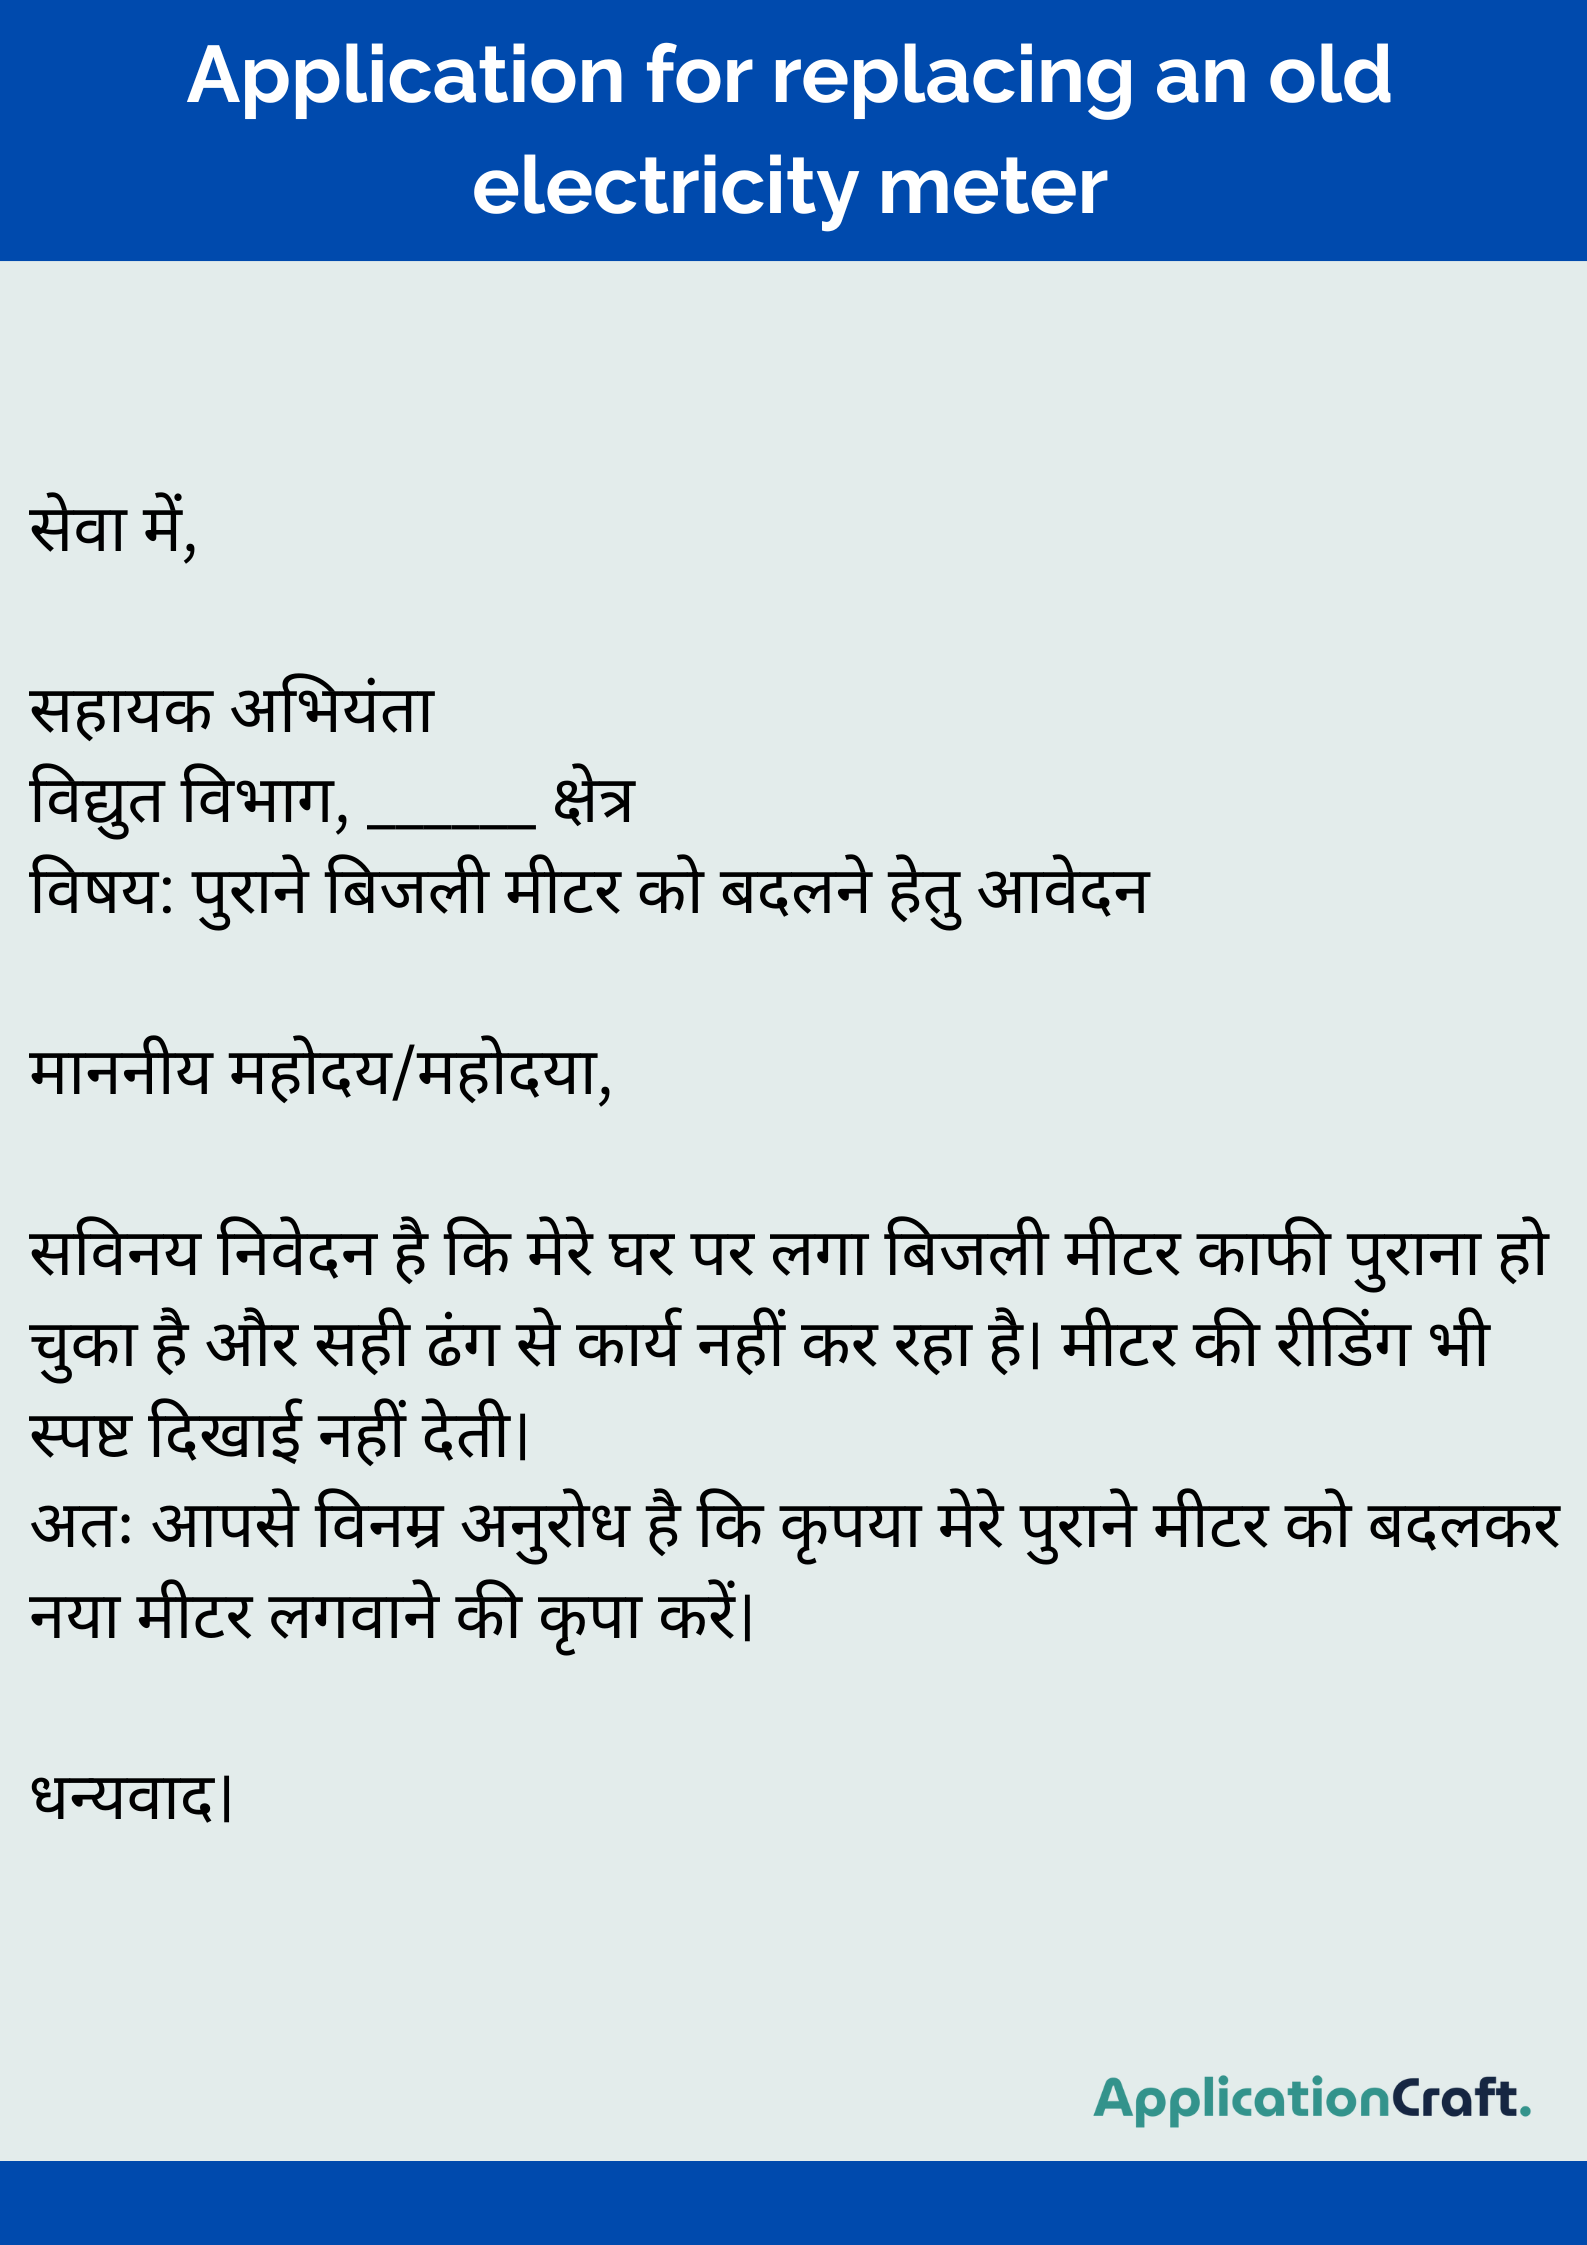 Application for replacing an old
electricity meter
सेवा में,
सहायक अभियंता
विद्युत विभाग, ______ क्षेत्र
विषय: पुराने बिजली मीटर को बदलने हेतु आवेदन
माननीय महोदय/महोदया,
सविनय निवेदन है कि मेरे घर पर लगा बिजली मीटर काफी पुराना हो
चुका है और सही ढंग से कार्य नहीं कर रहा है। मीटर की रीडिंग भी
स्पष्ट दिखाई नहीं देती।
अतः आपसे विनम्र अनुरोध है कि कृपया मेरे पुराने मीटर को बदलकर
नया मीटर लगवाने की कृपा करें।
धन्यवाद।
ApplicationCraft.